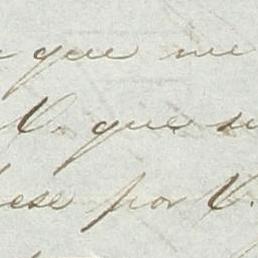 que me
V. que su
ese por V.